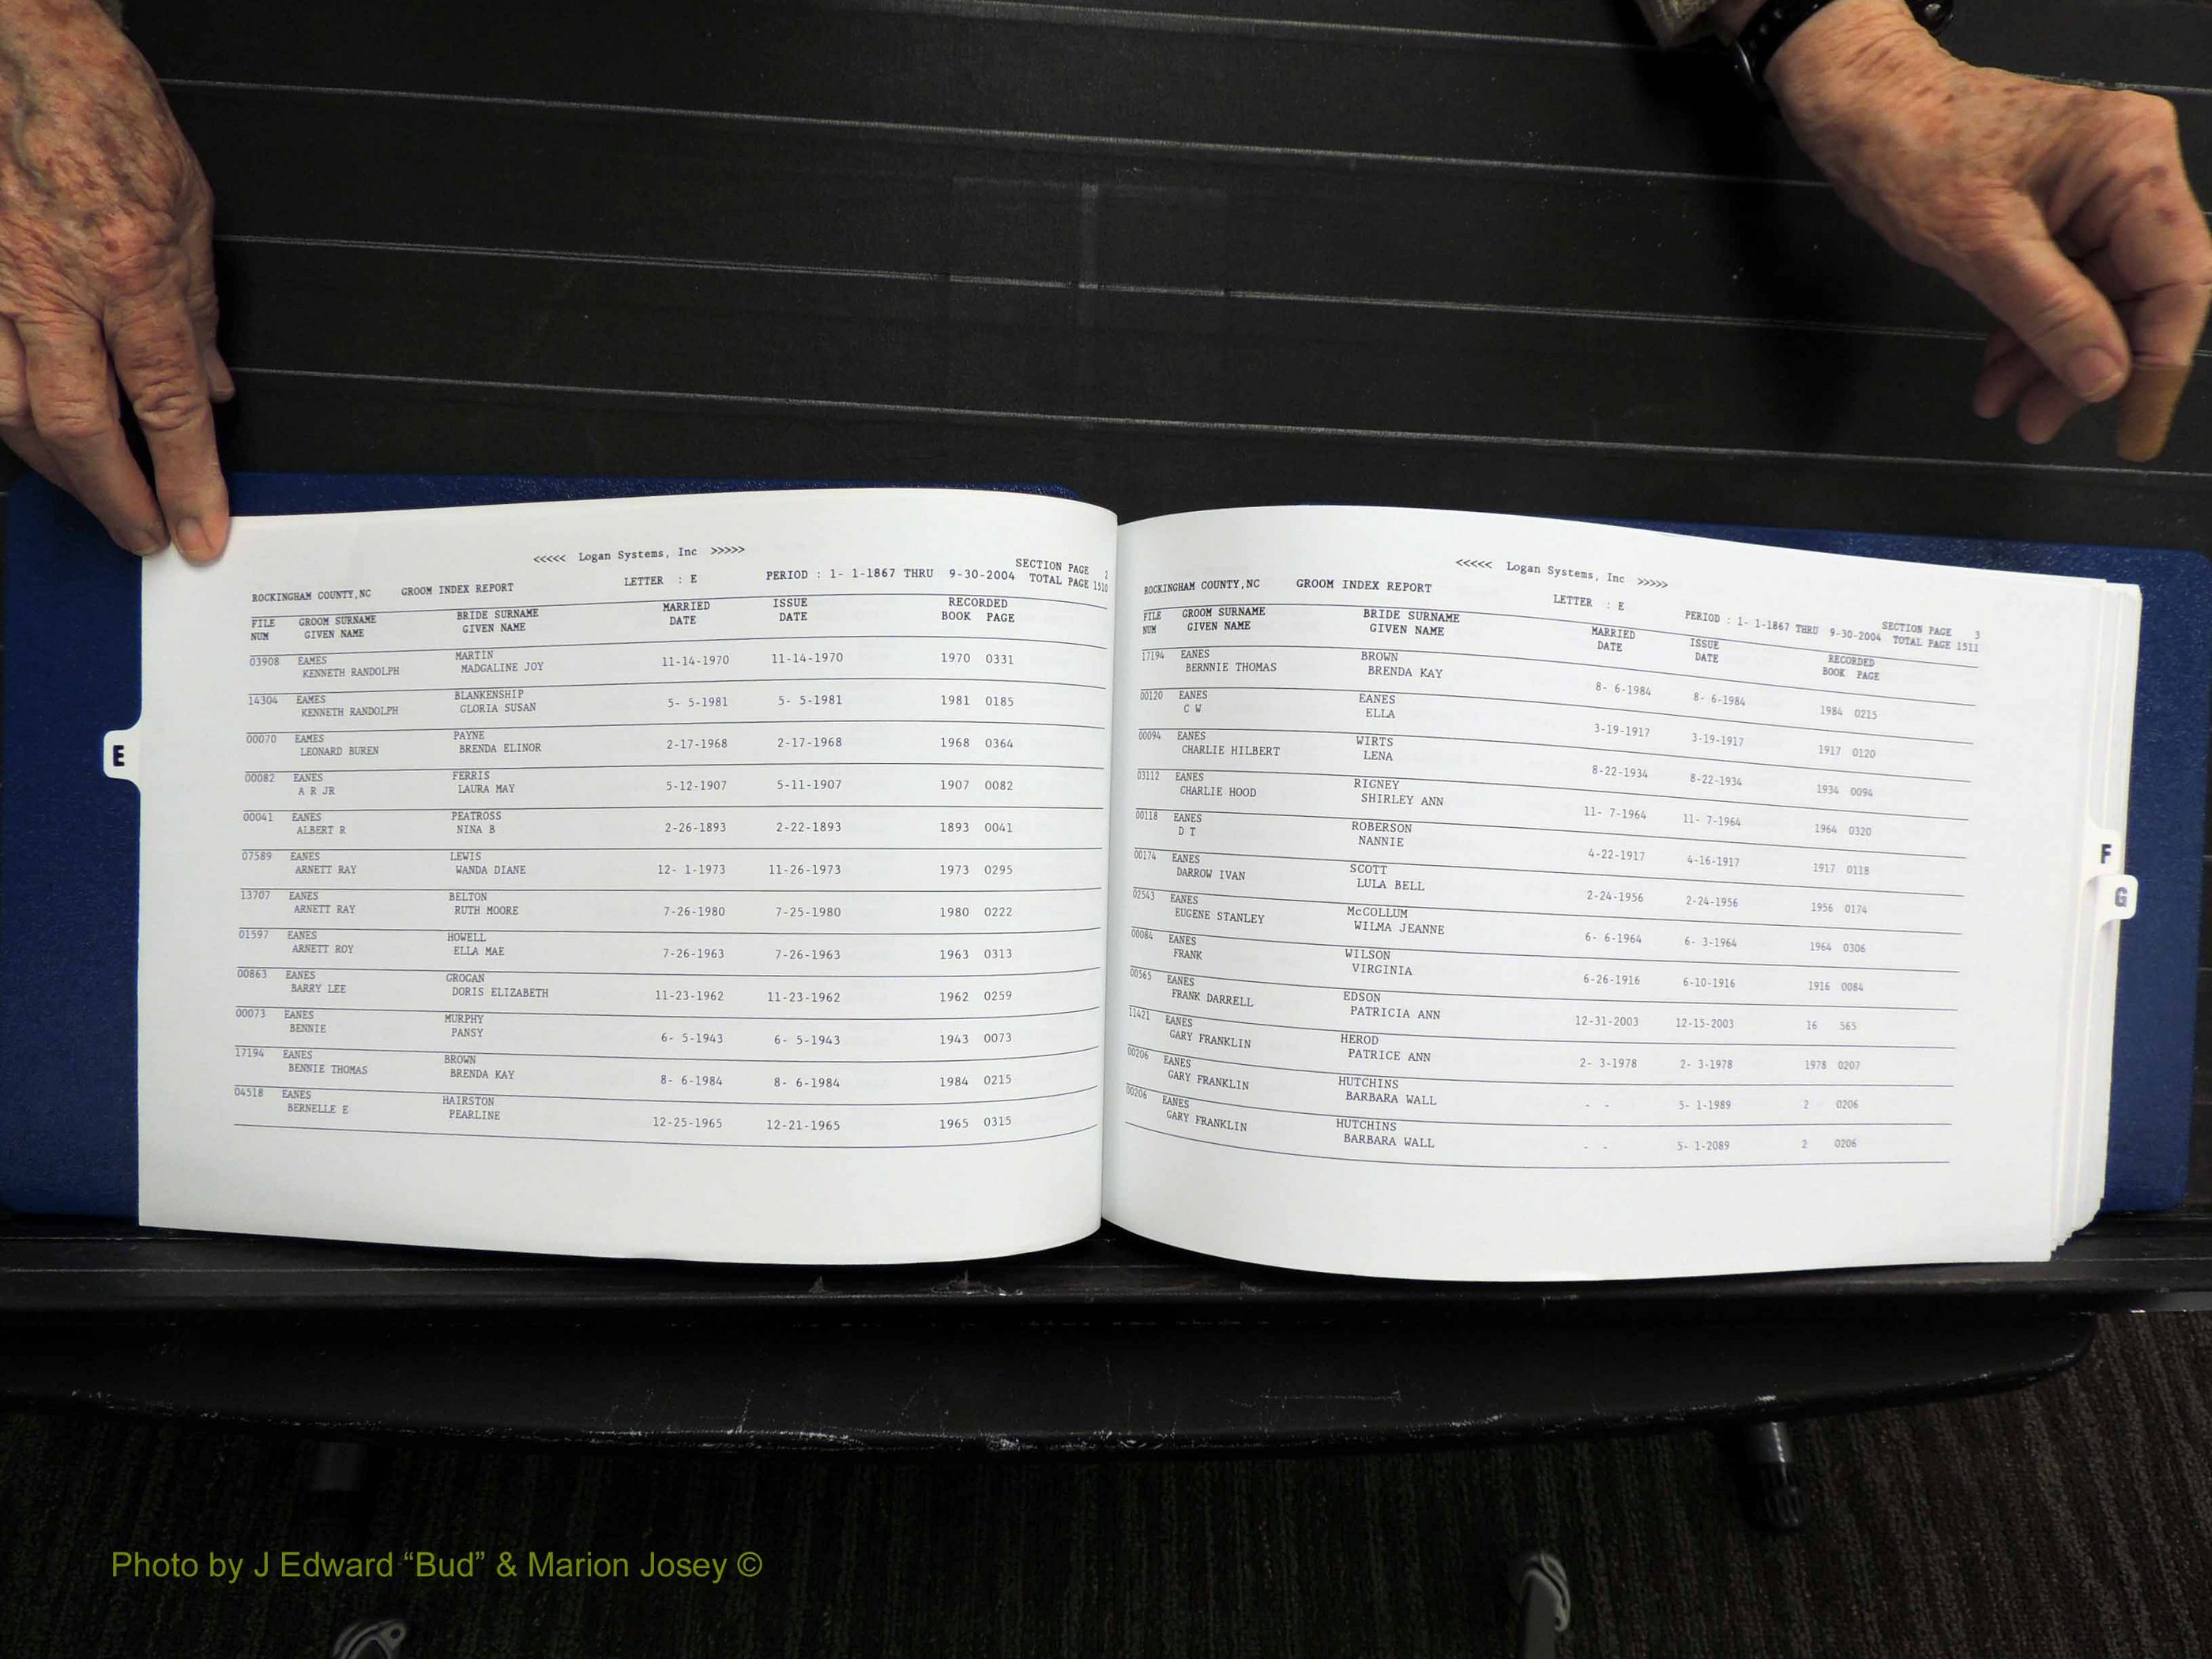 <<<<< Logan Systems, Inc >>>>>
SECTION PAGE 2
ROCKINGHAM COUNTY,NC GROOM INDEX REPORT LETTER : E PERIOD : 1- 1-1867 THRU 9-30-2004 TOTAL PAGE 1510
FILE GROOM SURNAME BRIDE SURNAME MARRIED ISSUE RECORDED
NUM GIVEN NAME GIVEN NAME DATE DATE BOOK PAGE
03908 EAMES MARTIN
KENNETH RANDOLPH MADGALINE JOY 11-14-1970 11-14-1970 1970 0331
14304 EAMES BLANKENSHIP
KENNETH RANDOLPH GLORIA SUSAN 5- 5-1981 5- 5-1981 1981 0185
00070 EAMES PAYNE
LEONARD BUREN BRENDA ELINOR 2-17-1968 2-17-1968 1968 0364
00082 EANES FERRIS
A R JR LAURA MAY 5-12-1907 5-11-1907 1907 0082
00041 EANES PEATROSS
ALBERT R NINA B 2-26-1893 2-22-1893 1893 0041
07589 EANES LEWIS
ARNETT RAY WANDA DIANE 12- 1-1973 11-26-1973 1973 0295
13707 EANES BELTON
ARNETT RAY RUTH MOORE 7-26-1980 7-25-1980 1980 0222
01597 EANES HOWELL
ARNETT ROY ELLA MAE 7-26-1963 7-26-1963 1963 0313
00863 EANES GROGAN
BARRY LEE DORIS ELIZABETH 11-23-1962 11-23-1962 1962 0259
00073 EANES MURPHY
BENNIE PANSY 6- 5-1943 6- 5-1943 1943 0073
17194 EANES BROWN
BENNIE THOMAS BRENDA KAY 8- 6-1984 8- 6-1984 1984 0215
04518 EANES HAIRSTON
BERNELLE E PEARLINE 12-25-1965 12-21-1965 1965 0315
E
<<<<< Logan Systems, Inc >>>>>
SECTION PAGE 3
ROCKINGHAM COUNTY,NC GROOM INDEX REPORT LETTER : E PERIOD : 1- 1-1867 THRU 9-30-2004 TOTAL PAGE 1511
FILE GROOM SURNAME BRIDE SURNAME MARRIED ISSUE RECORDED
NUM GIVEN NAME GIVEN NAME DATE DATE BOOK PAGE
17194 EANES BROWN
BERNNIE THOMAS BRENDA KAY 8- 6-1984 8- 6-1984 1984 0215
00120 EANES EANES
C W ELLA 3-19-1917 3-19-1917 1917 0120
00094 EANES WIRTS
CHARLIE HILBERT LENA 8-22-1934 8-22-1934 1934 0094
03112 EANES RIGNEY
CHARLIE HOOD SHIRLEY ANN 11- 7-1964 11- 7-1964 1964 0320
00118 EANES ROBERSON
D T NANNIE 4-22-1917 4-16-1917 1917 0118
00174 EANES SCOTT
DARROW IVAN LULA BELL 2-24-1956 2-24-1956 1956 0174
02543 EANES McCOLLUM
EUGENE STANLEY WILMA JEANNE 6- 6-1964 6- 3-1964 1964 0306
00084 EANES WILSON
FRANK VIRGINIA 6-26-1916 6-10-1916 1916 0084
00565 EANES EDSON
FRANK DARRELL PATRICIA ANN 12-31-2003 12-15-2003 16 565
11421 EANES HEROD
GARY FRANKLIN PATRICE ANN 2- 3-1978 2- 3-1978 1978 0207
00206 EANES HUTCHINS
GARY FRANKLIN BARBARA WALL - - 5- 1-1989 2 0206
00206 EANES HUTCHINS
GARY FRANKLIN BARBARA WALL - - 5- 1-2089 2 0206
F
G
Photo by J Edward “Bud” & Marion Josey ©